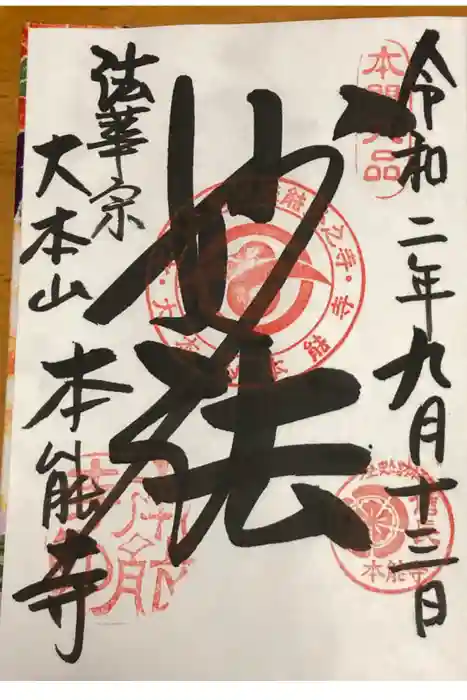 令和二年九月十三日
妙法
法華宗
大本山 本能寺
本能寺